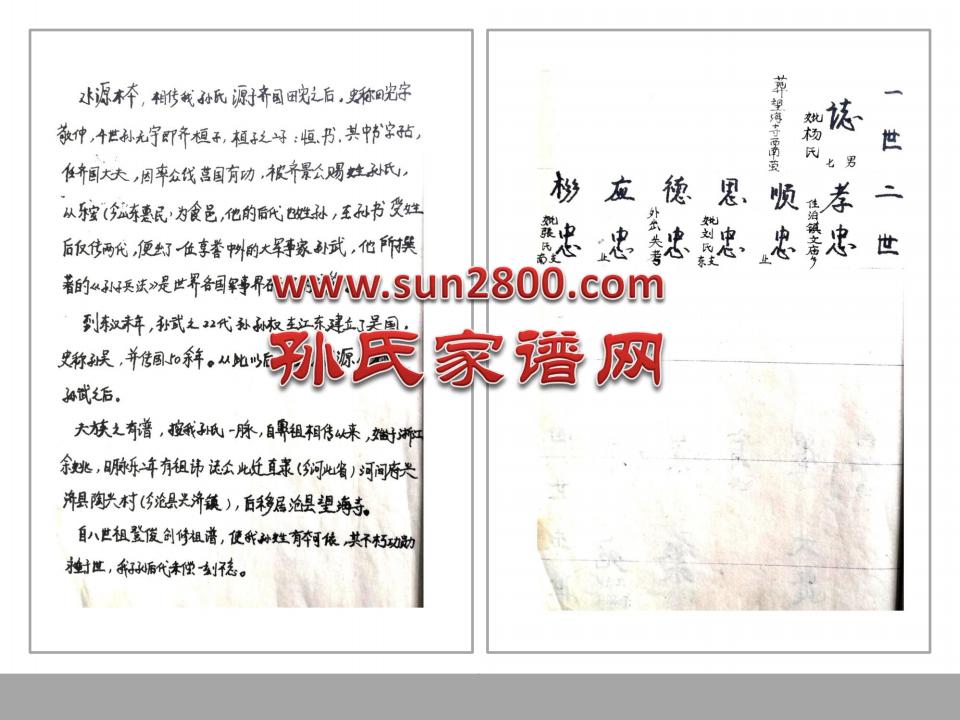 水源木本，相传我孙氏源于齐国田完之后。史称田完字
敬仲，4世孙无宇即齐桓子，桓子之子：恒、书，其中书字占，
任齐国大夫，因率众伐莒国有功，被齐景公赐姓孙氏，
从乐安（今山东惠民）为食邑，他的后代也姓孙，王孙书受姓
后仅传两代，便出了一位享誉中外的大军事家孙武，他所撰
著的《孙子兵法》是世界各国军事界
到东汉末年，孙武之22代孙孙权在江东建立了吴国，
史称孙吴，并传国50余年。从此以后 源
孙武之后。
夫族之有谱，按我孙氏一脉，自鼻祖相传以来，始于浙江
余姚，明永乐二年有祖讳誌公北迁直隶（今河北省）河间府兴
济县陶兴村（今沧县兴济镇），后移居沧县望海寺。
自八世祖登俊创修祖谱，使我孙姓有本可依，其不朽功勋
于世，我子孙后代未偿一刻不忘。
www.sun2800.com
孙氏家谱网
一世
誌
妣杨氏
七男
葬望海寺西南茔
二世
孝忠
住泊镇文庙乡
顺忠
止
恩忠
妣刘氏
东支
德忠
外出失考
应忠
止
彬忠
妣张氏
南支